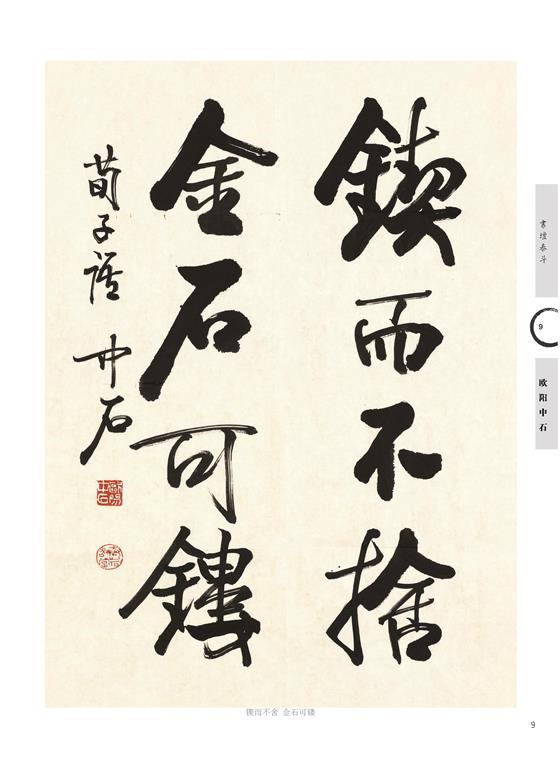 鍥而不捨
金石可鏤
荀子語 中石
歐陽中石
書壇泰斗
9
欧阳中石
锲而不舍 金石可镂
9